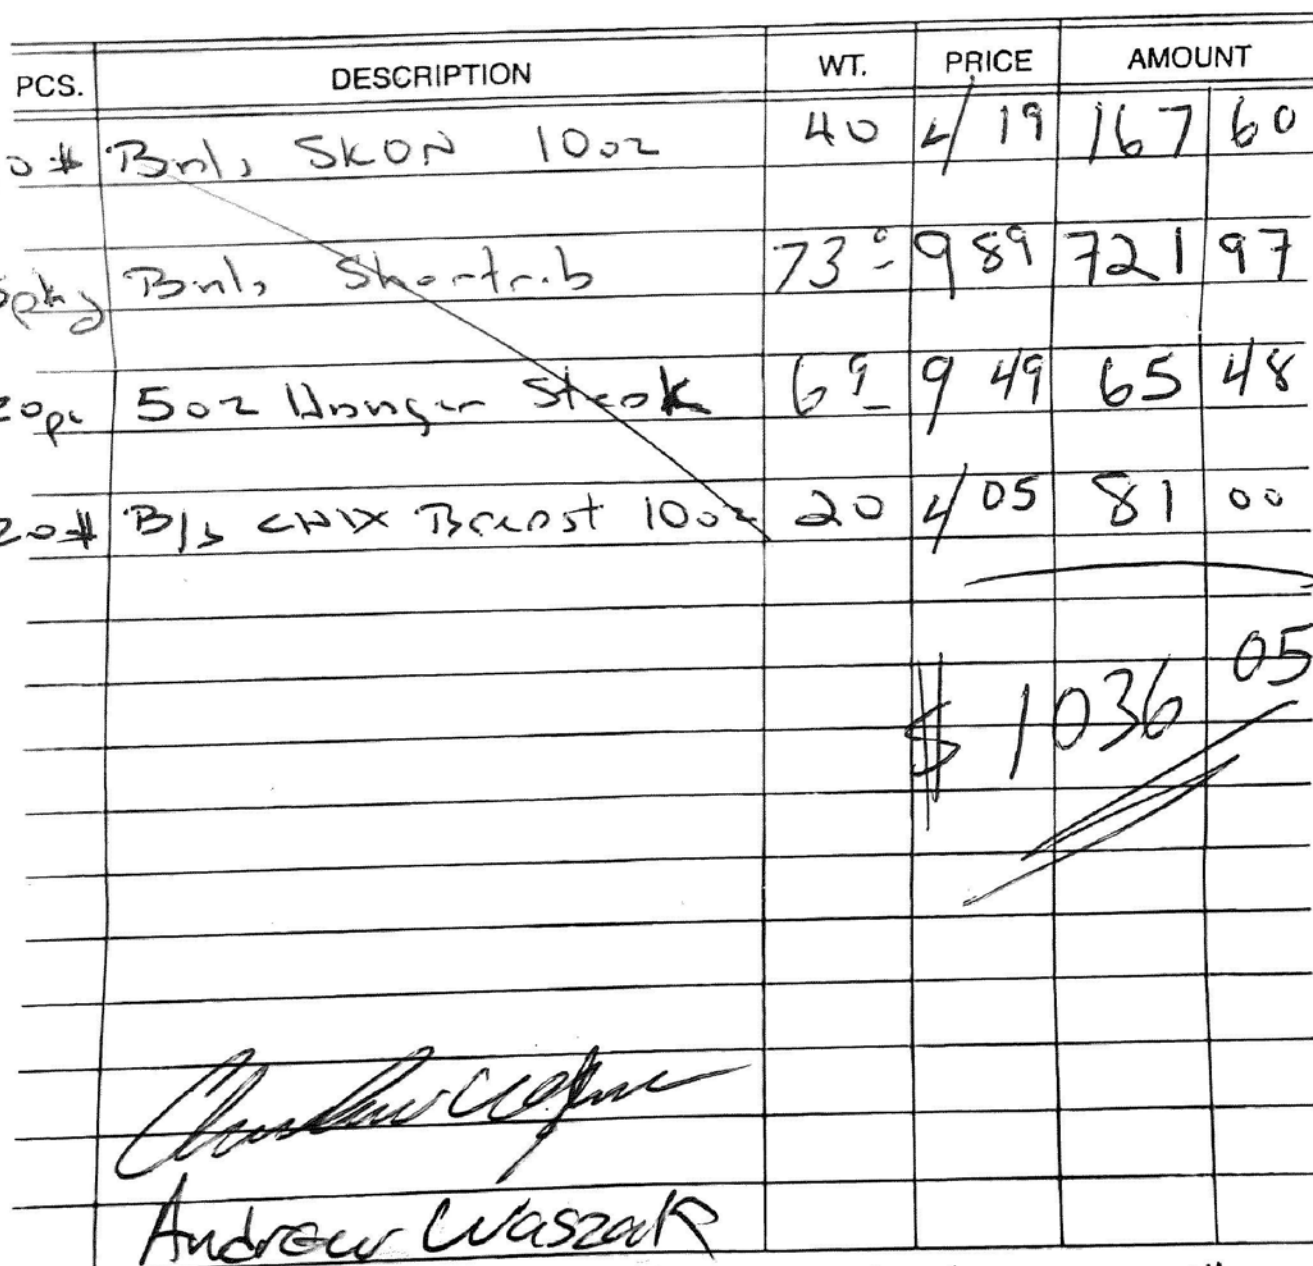 PCS. DESCRIPTION WT. PRICE AMOUNT
0# Bnls SKON 10oz 40 4 19 167 60
pkg Bnls Shortrib 73 0 9 89 721 97
20pc 5oz Hanger Steak 6 9 9 49 65 48
20# B/s CHIX Breast 10oz 20 4 05 81 00
$ 1036 05
Andrew Waszak